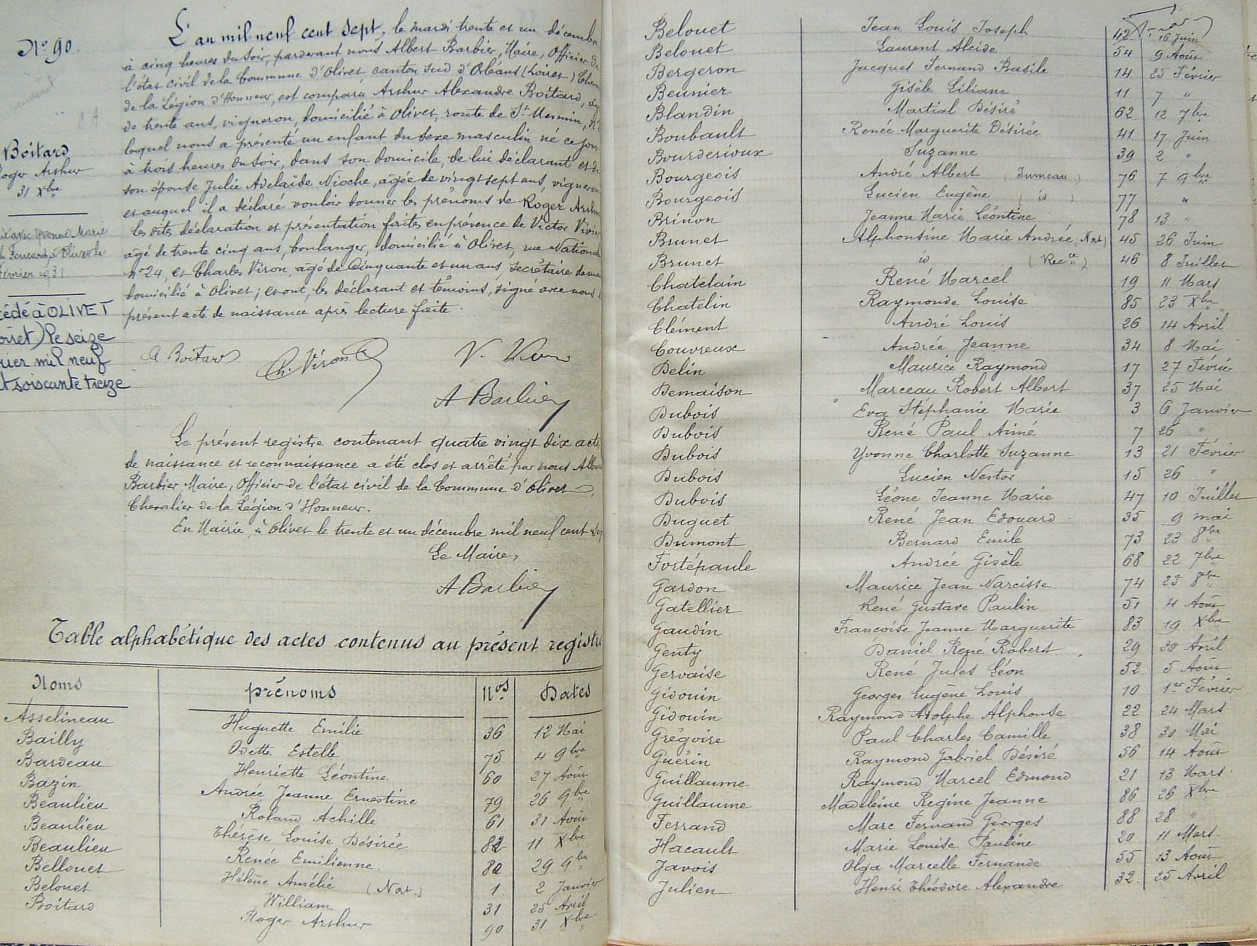 Nº 90.
Boitard
Roger Arthur
31 Xbre
Yvonne Marie
à OLIVET
le seize
mil neuf
soixante treize
L'an mil neuf cent sept, le mardi trente et un décembre
à cinq heures du soir, pardevant nous Albert Barbier, Maire, Officier de
l'état civil de la Commune d'Olivet canton sud d'Orléans (Loiret)
de la Légion d'Honneur, est comparu Arthur Alexandre Boitard, âgé
de trente ans, vigneron, domicilié à Olivet, route de St Mesmin,
lequel nous a présenté un enfant du sexe masculin né ce jour
à trois heures du soir, dans son domicile, de lui déclarant et de
son épouse Julie Adelaïde Nioche, âgée de vingt sept ans, vigneronne
et auquel il a déclaré vouloir donner les prénoms de Roger Arthur
Les dites déclaration et présentation faites en présence de Victor
âgé de trente cinq ans, boulanger, domicilié à Olivet, rue Nationale
nº 24, et Charles Viron, âgé de Cinquante et un ans, secrétaire de
domicilié à Olivet; et ont, les déclarant et témoins, signé avec nous le
présent acte de naissance après lecture faite.
A Boitard Ch. Viron V.
A Barbier
Le présent registre contenant quatre vingt dix actes
de naissance et reconnaissance a été clos et arrêté par nous Albert
Barbier Maire, Officier de l'état civil de la Commune d'Olivet,
Chevalier de la Légion d'Honneur.
En Mairie, à Olivet le trente et un décembre mil neuf cent sept
Le Maire,
A Barbier
Table alphabétique des actes contenus au présent registre
Noms prénoms Nos Dates
Asselineau Huguette Emilie 36 12 Mai
Bailly Odette Estelle 75 4 9bre
Bardeau Henriette Léontine 60 27 Août
Bazin Andrée Jeanne Ernestine 79 26 9bre
Beaulieu Roland Achille 61 31 Août
Beaulieu Thérèse Louise Désirée 82 11 Xbre
Beaulieu Renée Emilienne 80 29 9bre
Bellouet Hélène Amélie (Nat.) 1 2 Janvier
Belouet William 31 25 Avril
Boitard Roger Arthur 90 31 Xbre
Belouet Jean Louis Joseph 42 15 Juin
Belouet Laurent Alcide 54 9 Août
Bergeron Jacques Fernand Basile 14 25 Février
Beunier Gisèle Liliane 11 7 "
Blandin Martial Désiré 62 12 7bre
Boubault Renée Marguerite Désirée 41 17 Juin
Bourderioux Suzanne 39 2 "
Bourgeois André Albert (Jumeau) 76 7 9bre
Bourgeois Lucien Eugène (id) 77 "
Brinon Jeanne Marie Léontine 78 13 "
Brunet Alphonsine Marie Andrée, Nat) 45 26 Juin
Brunet id (Recce) 46 8 Juillet
Chatelain René Marcel 19 11 Mars
Chatelin Raymonde Louise 85 23 Xbre
Clément André Louis 26 14 Avril
Couvreux Andrée Jeanne 34 8 Mai
Delin Maurice Raymond 17 27 Février
Demaison Marceau Robert Albert 37 25 Mai
Dubois Eva Stéphanie Marie 3 6 Janvier
Dubois René Paul Aimé 7 26 "
Dubois Yvonne Charlotte Suzanne 13 21 Février
Dubois Lucien Nestor 15 26 "
Dubois Léone Jeanne Marie 47 10 Juillet
Duguet René Jean Edouard 35 9 mai
Dumont Bernard Emile 73 23 8bre
Fortépaule Andrée Gisèle 68 22 7bre
Gardon Maurice Jean Narcisse 74 23 8bre
Gatellier René Gustave Paulin 51 4 Août
Gaudin Françoise Jeanne Marguerite 83 19 Xbre
Genty Daniel René Robert 29 20 Avril
Gervaise René Jules Léon 52 5 Août
Gidouin Georges Eugène Louis 10 1er Février
Gidouin Raymond Adolphe Alphonse 22 24 Mars
Grégoire Paul Charles Camille 38 30 Mai
Guérin Raymond Gabriel Désiré 56 14 Août
Guillaume Raymond Marcel Edmond 21 13 Mars
Guillaume Madeleine Régine Jeanne 86 26 Xbre
Ferrand Marc Fernand Georges 88 28 "
Hacault Marie Louise Pauline 20 11 Mars
Javois Olga Marcelle Fernande 55 13 Août
Julien Henri Théodore Alexandre 32 25 Avril